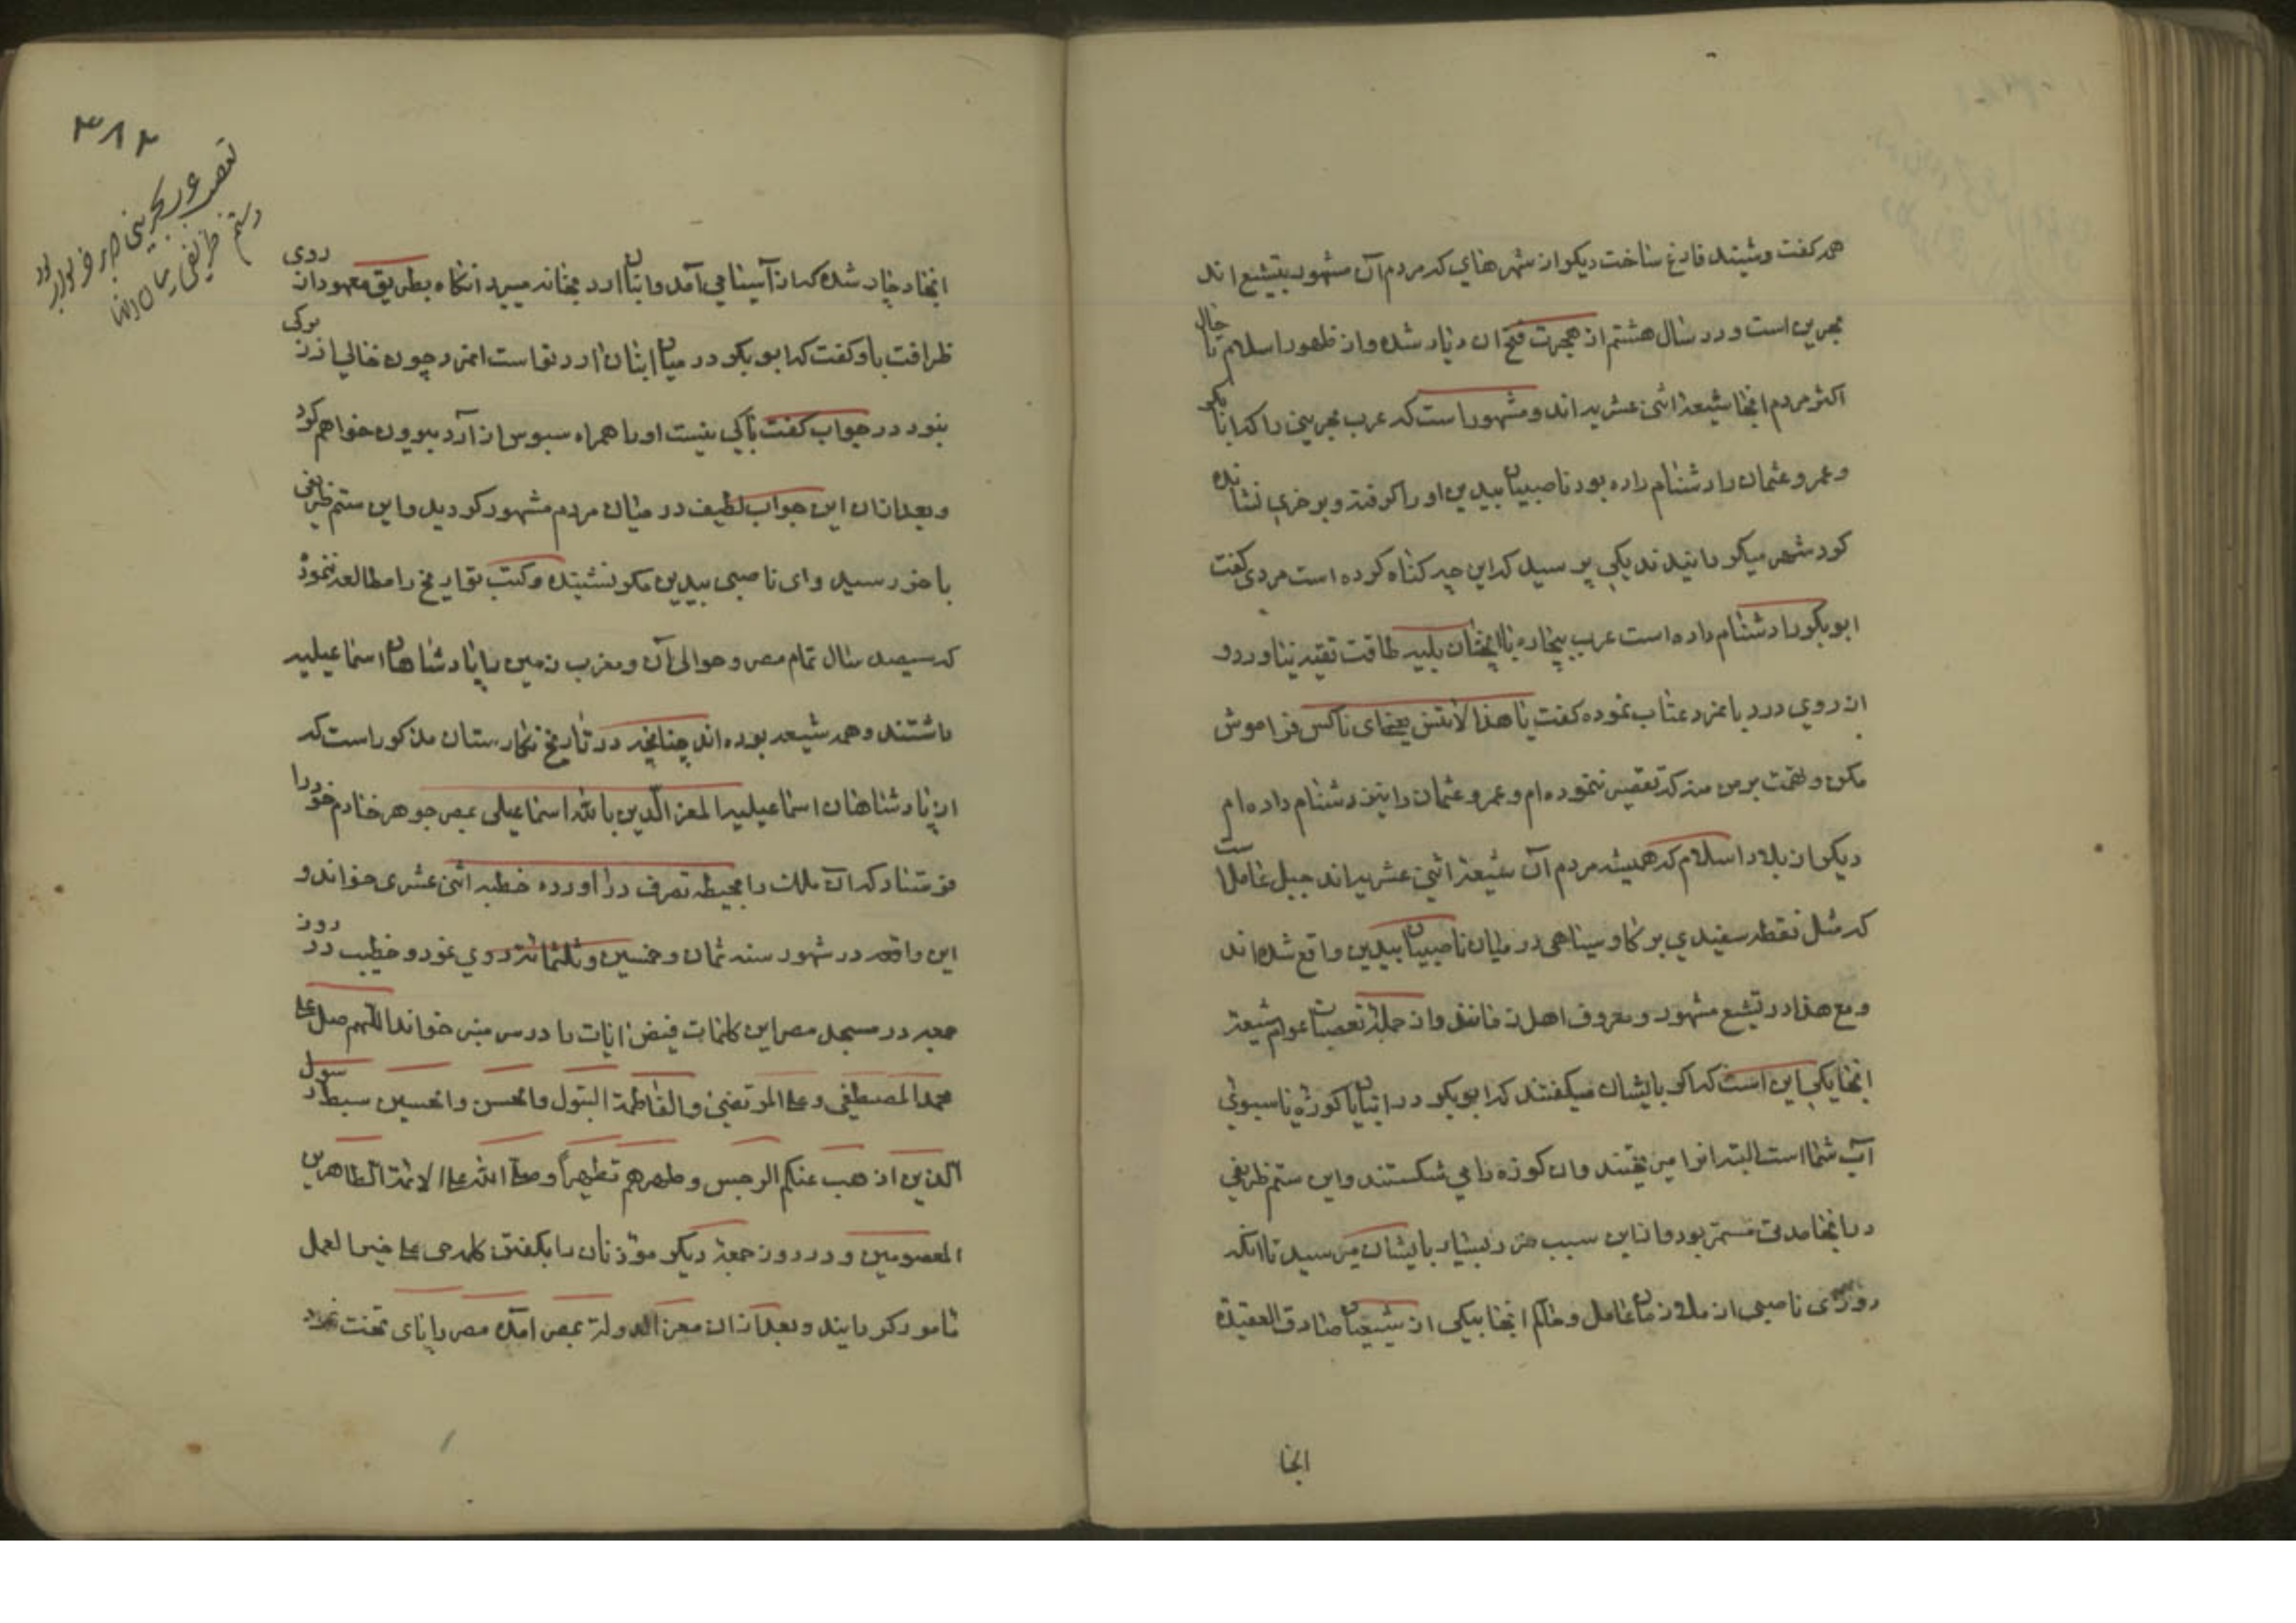 همه کفت و شیند فارغ ساخت دیکر از شهرهای که مردم آن مشهور بتشیع اند
بحرین است و در سال هشتم از هجرت فتح ان دیار شده و از ظهور اسلام تا حال
اکثر مردم انجا شیعهٔ اثنی عشریه اند و مشهور است که عرب بحرینی را که ابابکر
و عمر و عثمان را دشنام داده بود ناصبیان بیدین او را کرفته و بر خری نشانده
کرد شهر میکردانیدند یکی پرسید که این چه کناه کرده است مردی کفت
ابوبکر را دشنام داده است عرب بیچاره با انچنان بلیه طاقت تقیه نیاورد و
از روی درد با مزد عتاب نموده کفت یا هذا لا تنس یعنی ای ناکس فراموش
مکن و تهمت بر من منه که تقصیر ننموده ام و عمر و عثمان را نیز دشنام داده ام
دیکر از بلاد اسلام که همیشه مردم آن شیعهٔ اثنی عشریه اند جبل عامل است
که مثل نقطه سفیدی بر کاو سیاهی در میان ناصبیان بیدین واقع شده اند
و مع هذا در تشیع مشهور و معروف اهل زمانند و از جملهٔ تعصبات عوام شیعهٔ
انجا یکی این است که اکر بایشان میکفتند که ابوبکر در این کوزه یا سبوی
آب شما است البته انرا میریختند و ان کوزه را می شکستند و این ستم ظریفی
در انجا مدتی مستمر بود و از این سبب ضرر بسیار بایشان میرسید تا انکه
روزی ناصبی از ملازمان عامل و حاکم انجا بیکی از شیعیان صادق العقیده
انجا
انجا دچار شده که از آسیا می آمد و انبان ارد بخانه میبرد انکاه بطریق معهود از روی
ظرافت باو کفت که ابوبکر در میان انبان ارد تو است انمرد چون خالی از زیرکی
نبود در جواب کفت باکی نیست او را همراه سبوس از آرد بیرون خواهم کرد
و بعد از ان این جواب لطیف در میان مردم مشهور کردید و این ستم ظریفی
باخر رسید و ای ناصبی بیدین مکر نشنیده و کتب تواریخ را مطالعه ننموده
که سیصد سال تمام مصر و حوالی آن و مغرب زمین را پادشاهان اسماعیلیه
داشتند و همه شیعه بوده اند چنانچه در تاریخ نکارستان مذکور است که
از پادشاهان اسماعیلیه المعز الدین بالله اسماعیلی بمصر جوهر خادم خود را
فرستاد که ان ملک را بحیطه تصرف در اورده خطبه اثنی عشری خواند و
این واقعه در شهور سنه ثمان و خمسین و ثلثمائة روی نمود و خطیب در روز
جمعه در مسجد مصر این کلمات فیض ایات را در سر منبر خواند اللهم صل علی
محمد المصطفی و علی المرتضی و الفاطمة البتول و الحسن و الحسین سبط رسول
الذین اذهب عنکم الرجس و طهرهم تطهیراً و صلی الله علی الائمة الطاهرین
المعصومین و در روز جمعهٔ دیکر مؤذنان را بکفتن کلمه حی علی خیر العمل
مامور کردانیدند و بعد از ان معز الدولة بمصر امده مصر را پای تخت نمود
۳۸۲
تعصب عرب بحرینی